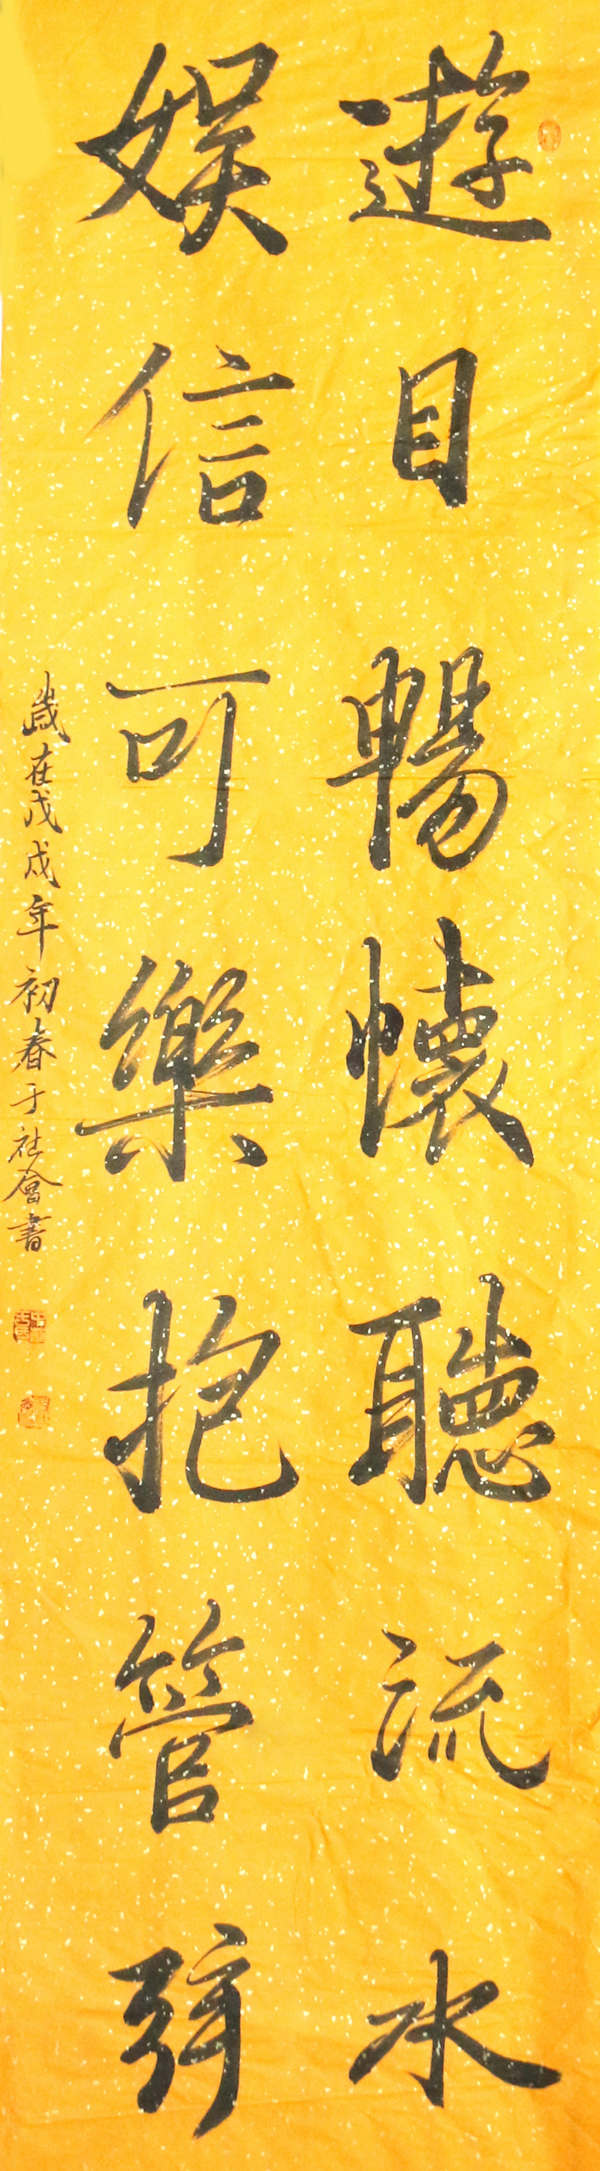 遊目暢懷聽流水
娱信可樂抱管弦
歲在戊戌年初春于社會書